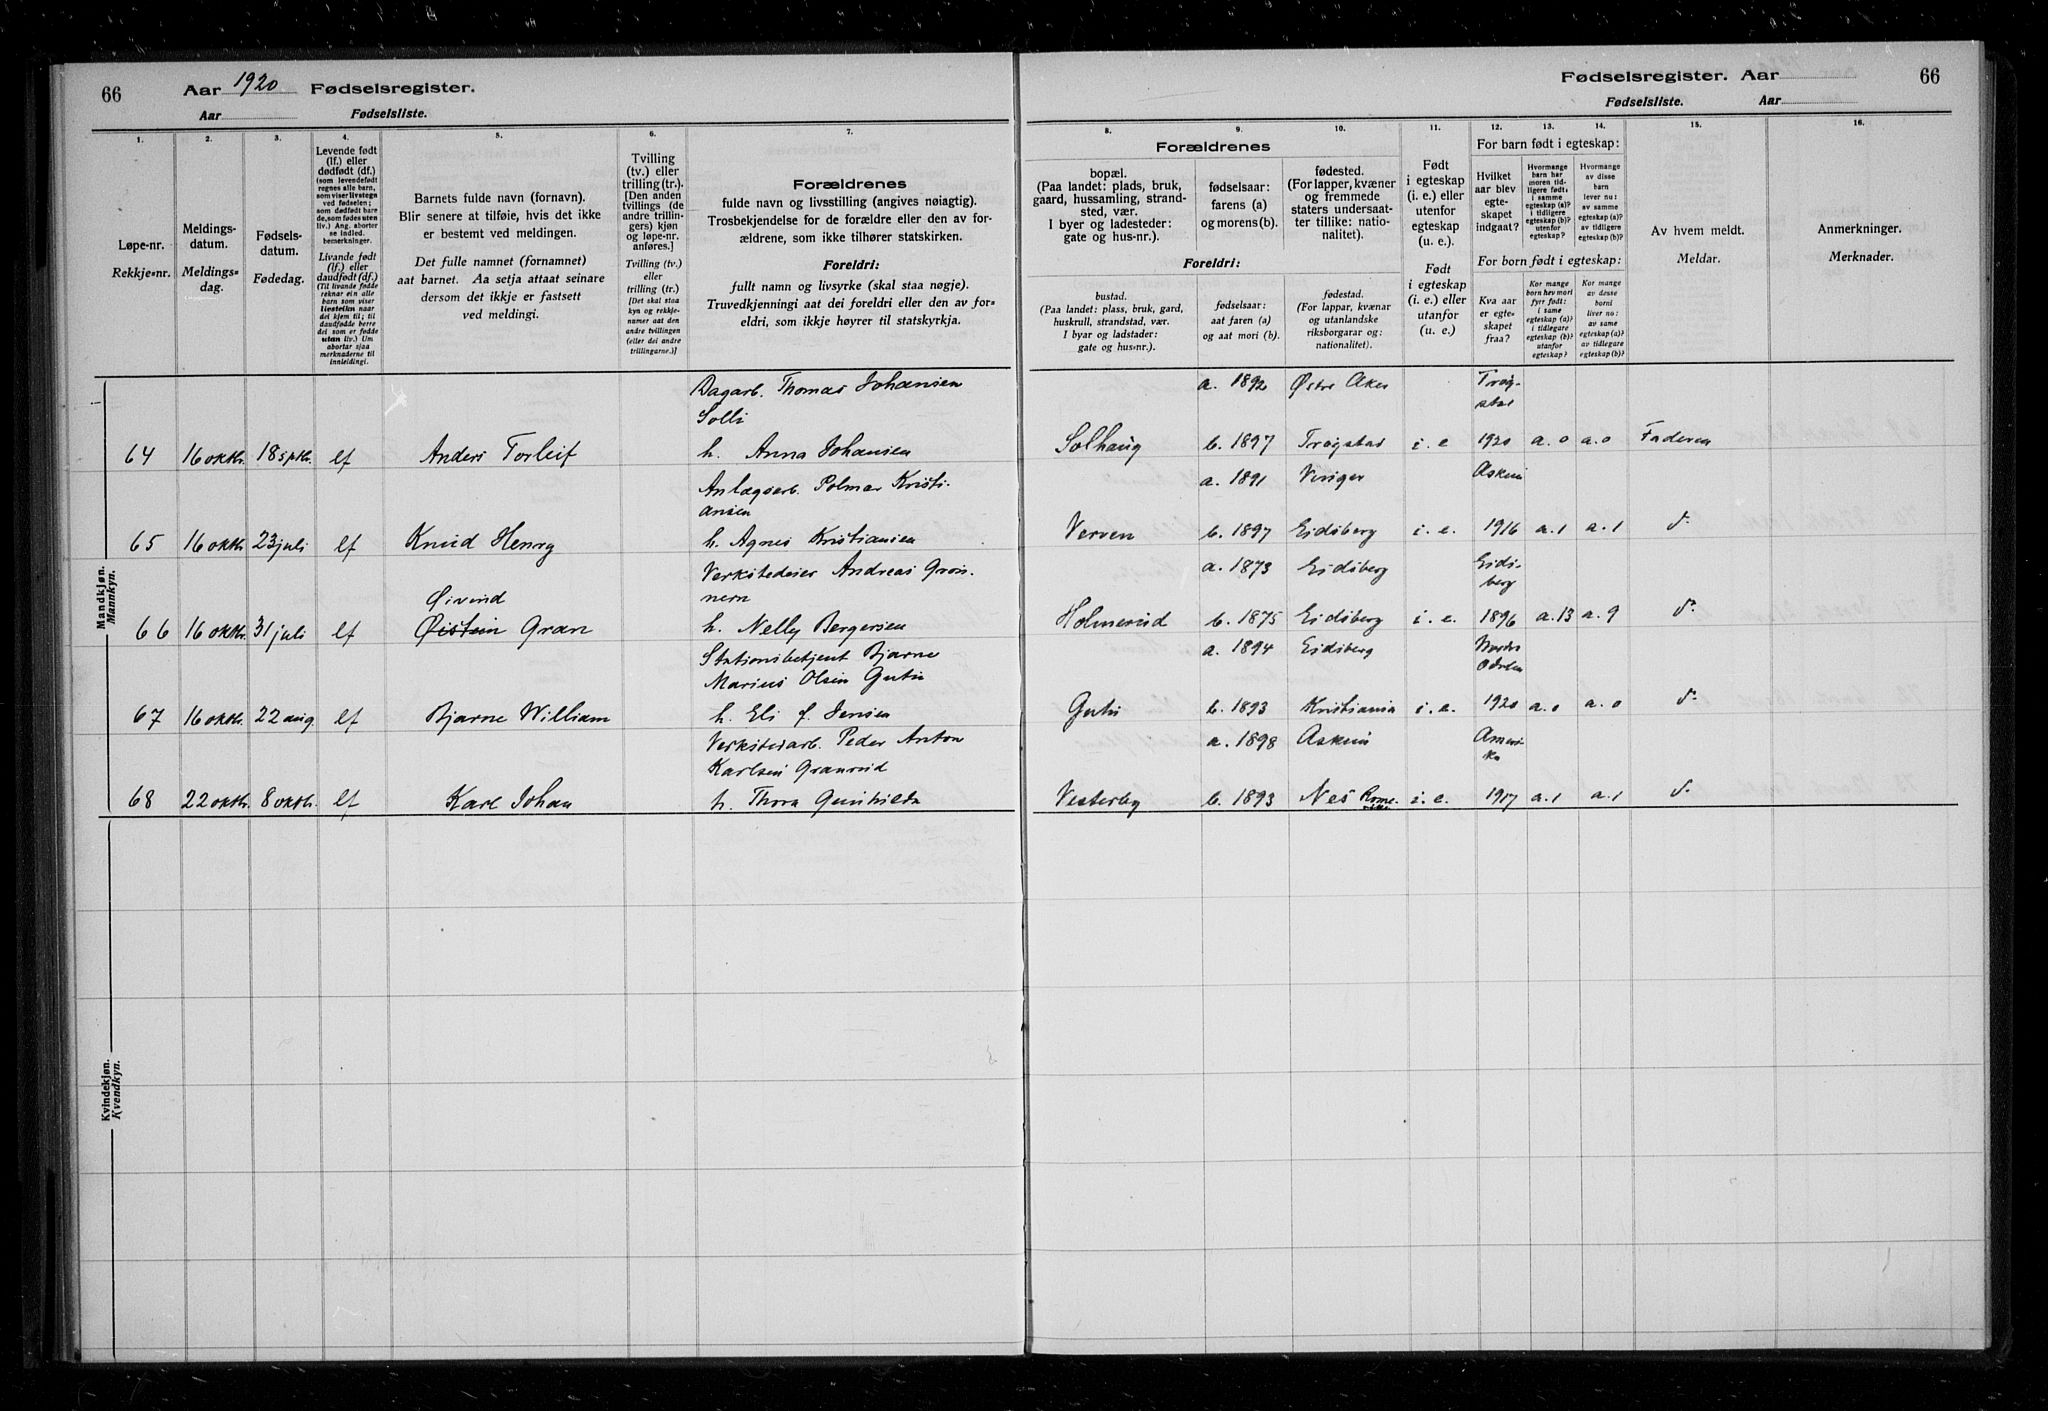 66
Aar 1920 Fødselsregister.
Aar Fødselsliste.
1. 2. 3. 4. 5. 6. 7.
Løpe-nr.
Rekkje-nr.
Meldings-
datum.
Meldings-
dag.
Fødsels-
datum.
Fødedag.
Levende født
(lf.) eller
dødfødt (df.)
(som levendefødt
regnes alle barn,
som viser livstegn
ved fødselen;
som dødfødt bare
de, som fødes uten
liv.) Ang. aborter
se indled.
bemerkninger.
Livande født
(lf.) eller
daudfødt (df.)
(Til livande fødde
reknar ein alle
barn som viser
livsteikn naar
dei kjem til; til
daudfødde berre
dei som er fødde
utan liv.) Um
abortar sjaa
merknaderne til
innleidingi.
Barnets fulde navn (fornavn).
Blir senere at tilføie, hvis det ikke
er bestemt ved meldingen.
Det fulle namnet (fornamnet)
aat barnet. Aa setja attaat seinare
dersom det ikkje er fastsett
ved meldingi.
Tvilling
(tv.) eller
trilling (tr.).
[Den anden
tvillings (de
andre trillin-
gers) kjøn
og løpe-nr.
anføres.]
Tvilling (tv.)
eller
trilling (tr.)
[Det skal staa
kyn og rekkje-
numer aat den
andre tvillingen
(eller dei andre
trillingarne.)]
Forældrenes
fulde navn og livsstilling (angives nøiagtig).
Trosbekjendelse for de forældre eller den av for-
ældrene, som ikke tilhører statskirken.
Foreldri:
fullt namn og livsyrke (skal staa nøgje).
Truvedkjenningi aat dei foreldri eller den av for-
eldri, som ikkje høyrer til statskyrkja.
Mandkjøn.
Mannkyn.
Dagarb. Thomas Johansen
Solli
64 16 oktbr. 18 sptbr. lf Anders Torleif h. Anna Johansen
Anlægsarb. Polmar Kristi-
ansen
65 16 oktbr. 23 juli lf Knud Henry h. Agnes Kristiansen
Verkstedeier Andreas Grøn-
nern
Øivind
66 16 oktbr. 31 juli lf Øistein Gran h. Nelly Bergersen
Stationsbetjent Bjarne
Marius Olsen Gutu
67 16 oktbr. 22 aug. lf Bjarne William h. Eli f. Jensen
Verkstedarb. Peder Anton
Karlsen Granrud
68 22 oktbr. 8 oktbr. lf Karl Johan h. Thora Gunhilda
Kvindekjøn.
Kvendkyn.
Fødselsregister. Aar 66
Fødselsliste. Aar
8. 9. 10. 11. 12. 13. 14. 15. 16.
Forældrenes
bopæl.
(Paa landet: plads, bruk,
gaard, hussamling, strand-
sted, vær.
I byer og ladesteder:
gate og hus-nr.).
fødselsaar:
farens (a)
og morens (b).
fødested.
(For lapper, kvæner
og fremmede
staters undersaat-
ter tillike: natio-
nalitet).
Foreldri:
bustad.
(Paa landet: plass, bruk, gard,
huskrull, strandstad, vær.
I byar og ladstader:
gate og hus-nr.).
fødselsaar:
aat faren (a)
og aat mori (b).
fødestad.
(For lappar, kvænar
og utanlandske
riksborgarar og:
nationalitet).
Født
i egteskap
(i. e.) eller
utenfor
egteskap
(u. e.).
Født
i egteskap
(i. e.) eller
utanfor
(u. e.)
For barn født i egteskap:
Hvilket
aar blev
egte-
skapet
indgaat?
Hvormange
barn har
moren tid-
ligere født:
i samme
egteskap (a)?
i tidligere
egteskap (b)?
utenfor
egteskap?
Hvormange
av disse
barn
lever nu:
av samme
egteskap (a)?
av tidligere
egteskap (b)?
For born født i egteskap:
Kva aar
er egte-
skapet
fraa?
Kor mange
born hev mori
fyrr født:
i same
egteskap (a)?
i tidlegare
egteskap (b)?
utanfor
egteskap?
Kor mange
av desse
borni
liver no:
av same
egteskap (a)?
av tidlegare
egteskap (b)?
Av hvem meldt.
Meldar.
Anmerkninger.
Merknader.
a. 1892 Østre Aker Trøg-
stad
Solhaug b. 1897 Trøgstad i. e 1920 a. 0 a. 0 Faderen
a. 1891 Vinger Askim
Verven b. 1897 Eidsberg i. e. 1916 a. 1 a. 1 d.
a. 1873 Eidsberg Eids-
berg
Holmerud b. 1875 Eidsberg i. e. 1896 a. 13 a. 9 d.
a. 1894 Eidsberg Nordre
Odalen
Gutu b. 1893 Kristiania i. e. 1920 a. 0 a. 0 d.
a. 1898 Askim Ameri-
ka
Vesterby b. 1893 Nes Rome-
rike i. e. 1917 a. 1 a. 1 d.